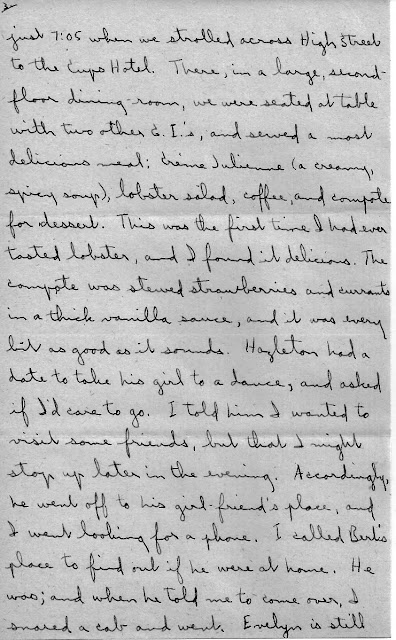 2
just 7:05 when we strolled across High Street
to the Cups Hotel. There, in a large, second-
floor dining-room, we were seated at table
with two other G.I.'s, and served a most
delicious meal: Crème Julienne (a creamy,
spicy soup), lobster salad, coffee, and compote
for dessert. This was the first time I had ever
tasted lobster, and I found it delicious. The
compote was stewed strawberries and currants
in a thick vanilla sauce, and it was every
bit as good as it sounds. Hazleton had a
date to take his girl to a dance, and asked
if I'd care to go. I told him I wanted to
visit some friends, but that I might
stop up later in the evening. Accordingly,
he went off to his girl-friend's place, and
I went looking for a phone. I called Bert's
place to find out if he were at home. He
was; and when he told me to come over, I
snared a cab and went. Evelyn is still